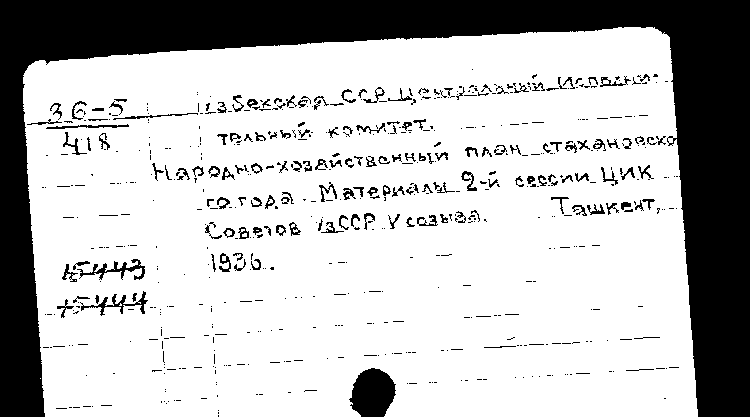 36-5
418
Узбекская ССР. Центральный Исполни-
тельный комитет.
Народно-хозяйственный план стахановско
го года. Материалы 2-й сессии ЦИК
Советов УзССР V созыва. Ташкент,
1936.
15443
15444